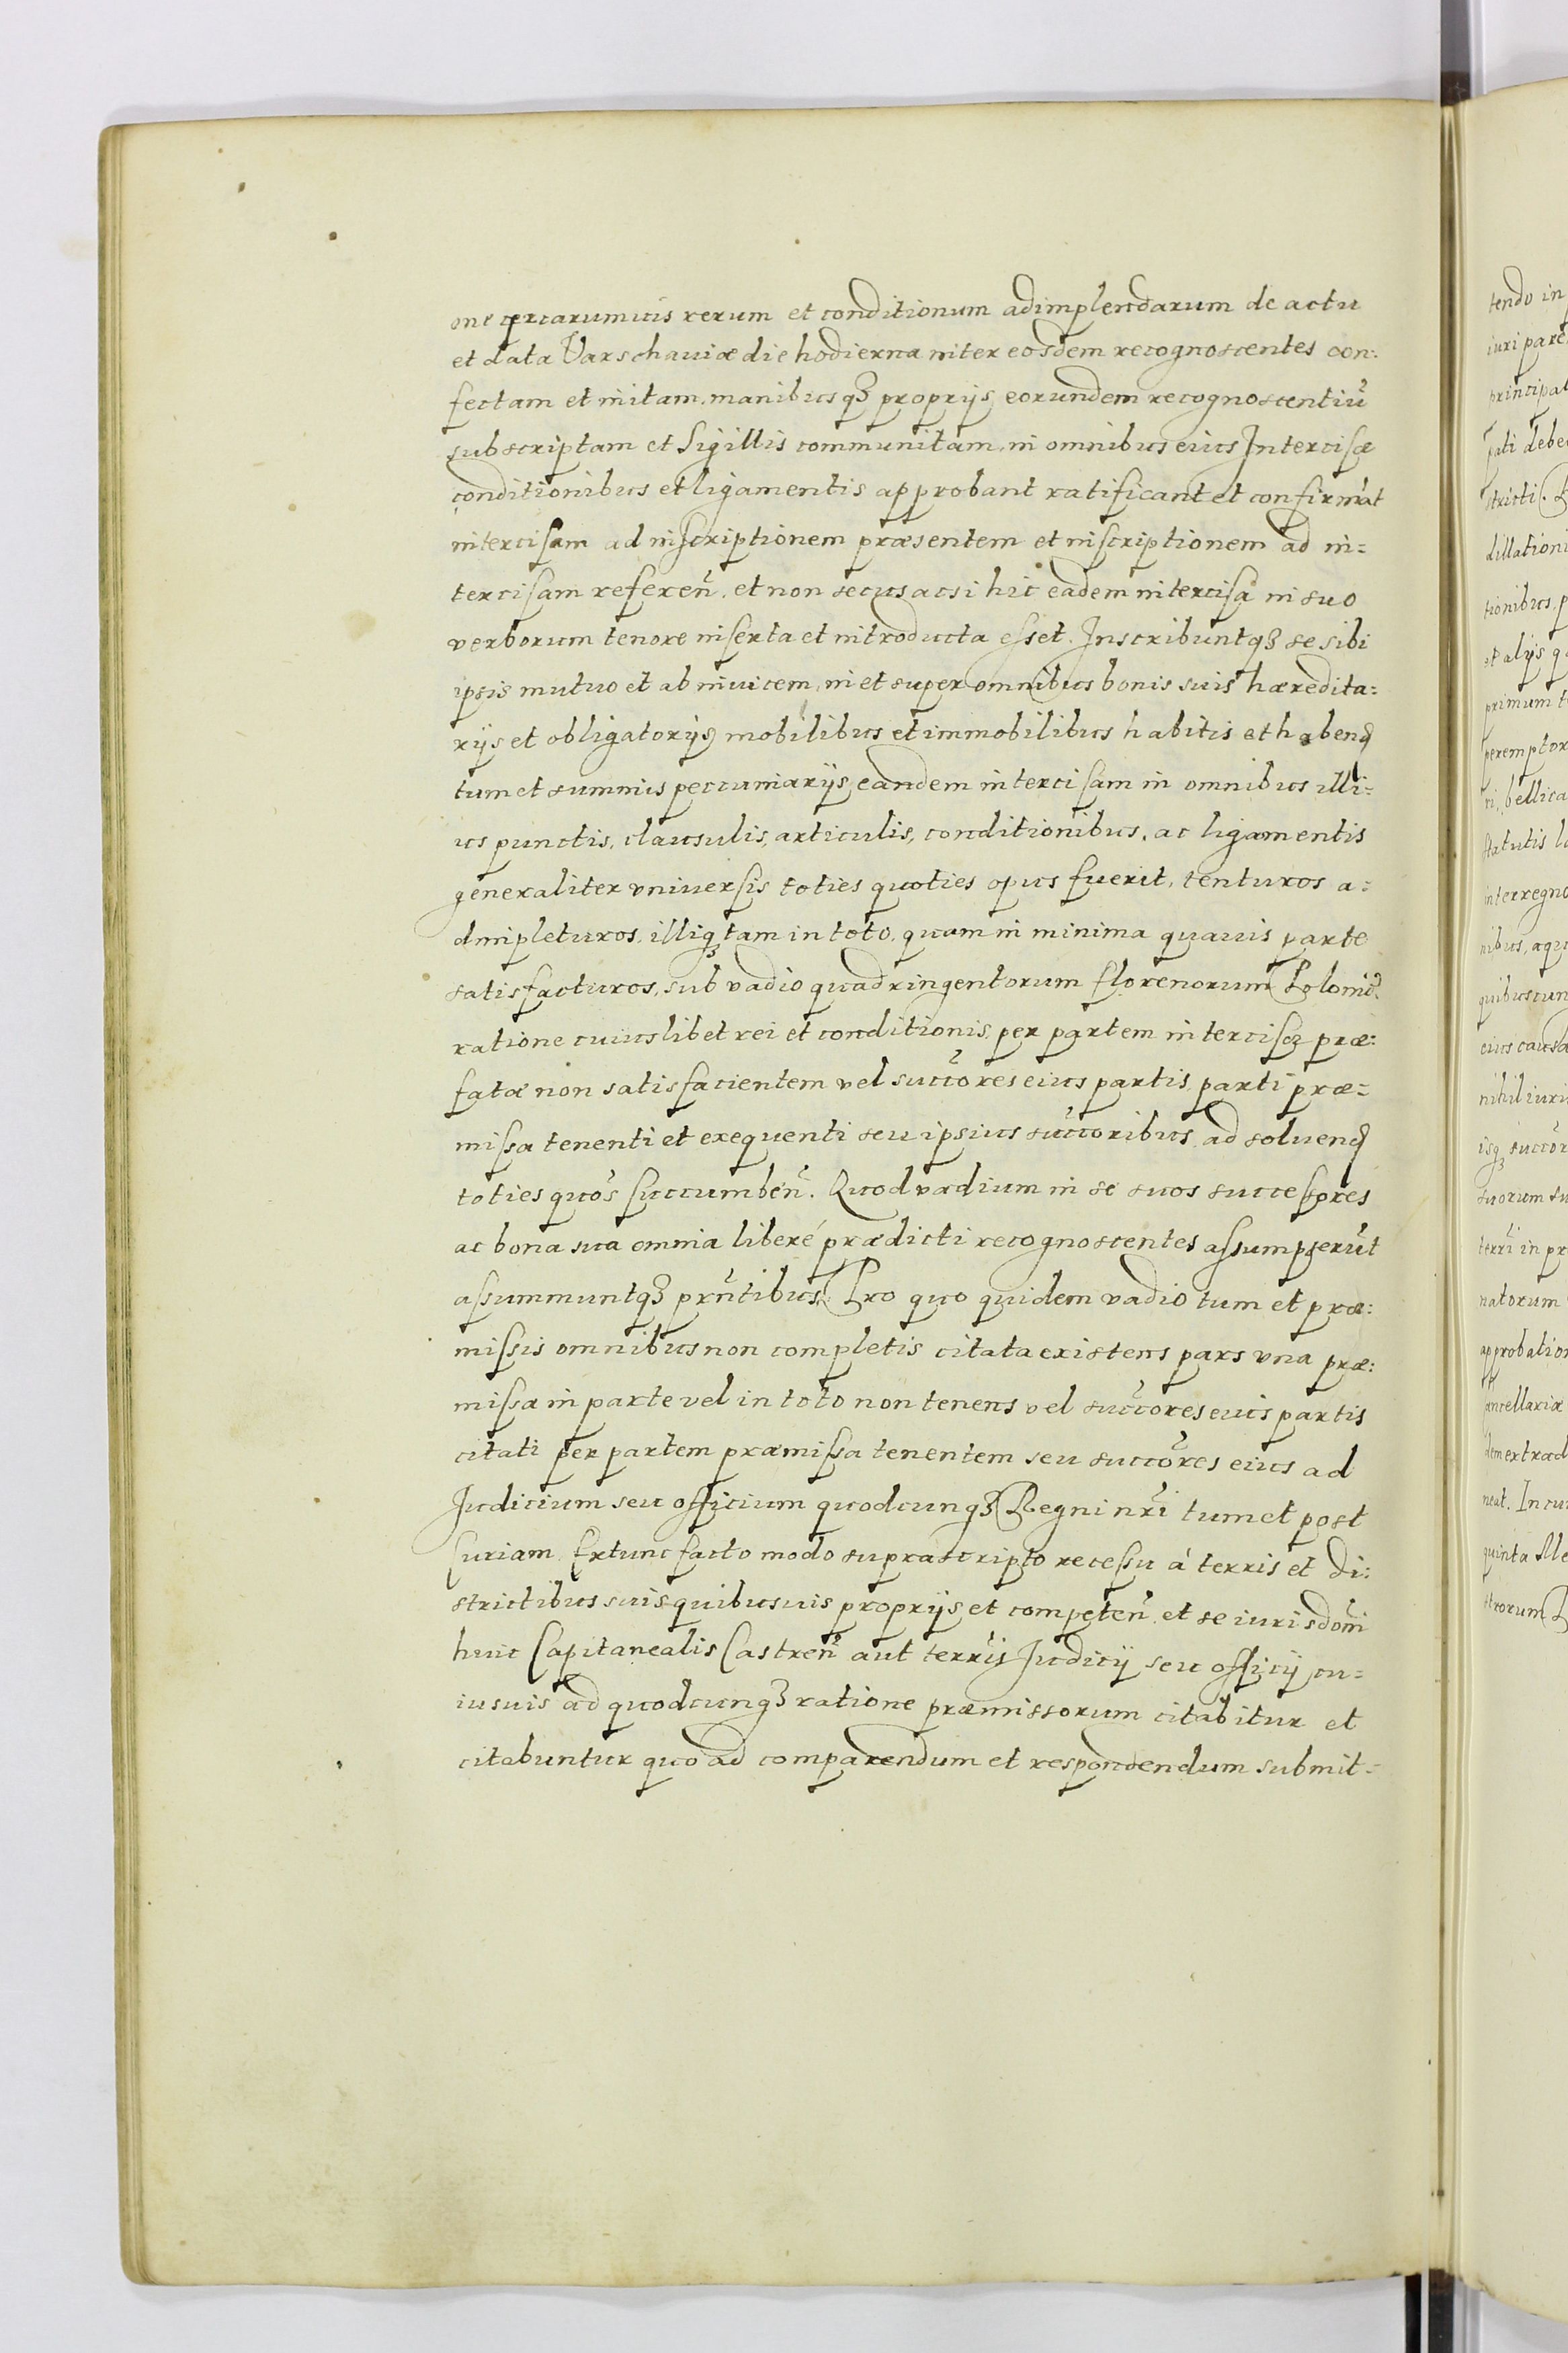 one certarumuis rerum et conditionum adimplendarum de actu
et data Varschauiæ die hodierna inter eosdem recognoscentes con:
fectam et initam, manibusqꝫ proprijs eorundem recognoscentiũ
subscriptam et Sigillis communitam, in omnibus eius Intercisæ
conditionibus et ligamentis approbant ratificant et confirmãt
intercisam ad inscriptionem præsentem et inscriptionem ad in=
tercisam referen̄. et non secus acsi hic eadem intercisa in suo
verborum tenore inserta et introducta esset. Inscribuntqꝫ se sibi
ipsis mutuo et ab inuicem, in et super omnibus bonis suis hæredita:
rijs et obligatorijs mobilibus et immobilibus habitis et habenđ
tum et summis pecuniarijs, eandem intercisam in omnibus illi:
us punctis, clausulis, articulis, conditionibus, ac ligamentis
generaliter vniuersis toties quoties opus fuerit, tenturos a:
dimpleturos, illiqꝫ tam in toto, quam in minima quauis parte
satisfacturos, sub vadio quadringentorum florenorum Poloniũ.
ratione cuiuslibet rei et conditionis, per partem intercisæ præ:
fatæ non satisfacientem vel succ̃ores eius partis, parti præ=
missa tenenti et exequenti seu ipsius succ̃oribus ad soluenđ
toties quo͂s succumben̄. Quod vadium in se suos successores
ac bona sua omnia liberé prædicti recognoscentes assumpserũt
assummuntqꝫ prn̄tibus. Pro quo quidem vadio tum et præ:
missis omnibus non completis citata existens pars vna præ:
missa in parte vel in toto non tenens vel succ̃ores eius partis
citati per partem præmissa tenentem seu succ̃ores eius ad
Judicium seu officium quodcunqꝫ Regni nr̃i tum et post
Curiam. Extunc facto modo suprascripto recessu á terris et di:
strictibus suis quibusuis proprijs et competen̄. et se iurisdõni
huic Capitanealis Castren̄ aut terr̃ij Judicij seu officij cu=
iusuis ad quodcunqꝫ ratione præmissorum citabitur et
citabuntur quo ad comparendum et respondendum submit=